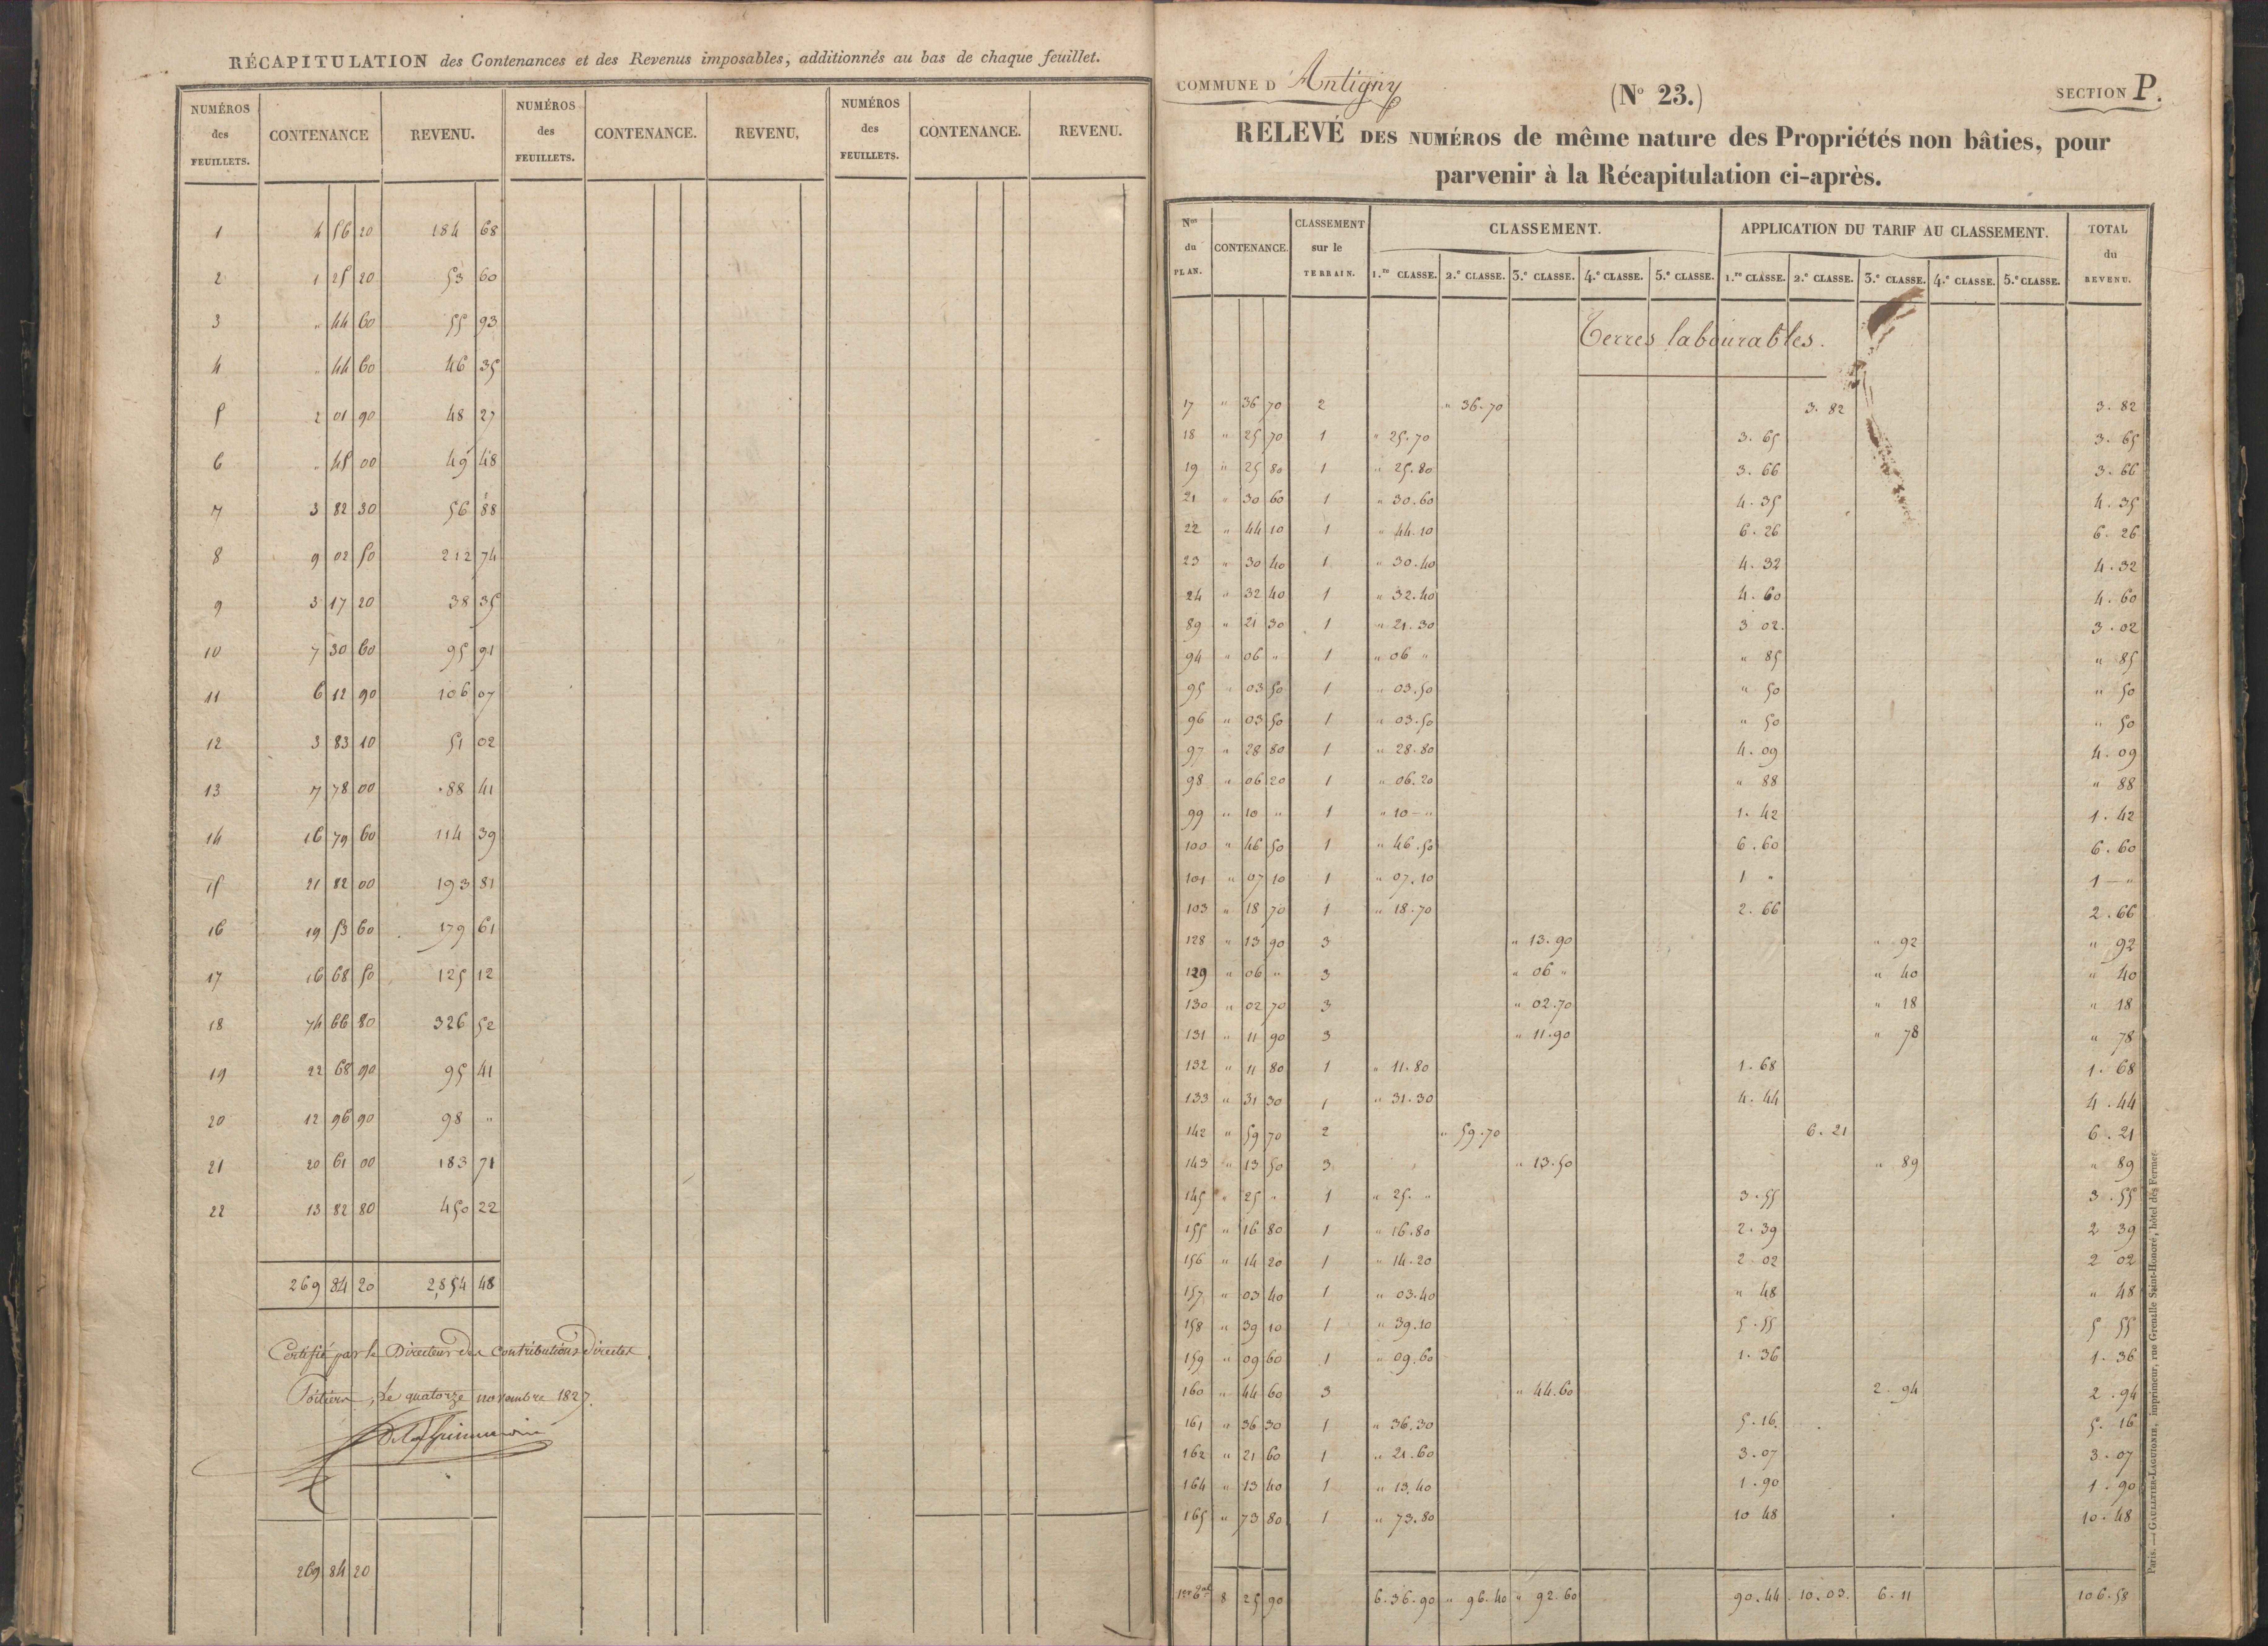 RÉCAPITULATION des Contenances et des Revenus imposables, additionnés au bas de chaque feuillet.
NUMÉROS des FEUILLETS. CONTENANCE REVENU. NUMÉROS des FEUILLETS. CONTENANCE. REVENU. NUMÉROS des FEUILLETS. CONTENANCE. REVENU.
1 4 56 20 184 68
2 1 25 20 53 60
3 " 44 60 55 93
4 " 44 60 46 35
5 2 01 90 48 27
6 " 45 00 49 48
7 3 82 30 56 88
8 9 02 50 212 74
9 3 17 20 38 35
10 7 30 60 95 91
11 6 12 90 106 07
12 3 83 10 51 02
13 7 78 00 88 41
14 16 79 60 114 39
15 21 82 00 193 81
16 19 53 60 179 61
17 16 68 50 125 12
18 74 66 80 326 52
19 22 68 90 95 41
20 12 96 90 98 "
21 20 61 00 183 71
22 13 82 80 450 22
269 84 20 2,854 48
Certifié par le Directeur des Contributions Directes
Poitiers, le quatorze novembre 1827.
269 84 20
COMMUNE D'Antigny
(No 23.)
SECTION P.
RELEVÉ DES NUMÉROS de même nature des Propriétés non bâties, pour
parvenir à la Récapitulation ci-après.
Nos du PLAN. CONTENANCE. CLASSEMENT sur le TERRAIN. CLASSEMENT. APPLICATION DU TARIF AU CLASSEMENT. TOTAL du REVENU.
1.re CLASSE. 2.e CLASSE. 3.e CLASSE. 4.e CLASSE. 5.e CLASSE. 1.re CLASSE. 2.e CLASSE. 3.e CLASSE. 4.e CLASSE. 5.e CLASSE.
Terres labourables.
17 " 36 70 2 " 36.70 3. 82 3. 82
18 " 25 70 1 " 25.70 3. 65 3. 65
19 " 25 80 1 " 25.80 3. 66 3. 66
21 " 30 60 1 " 30.60 4. 35 4. 35
22 " 44 10 1 " 44.10 6. 26 6. 26
23 " 30 40 1 " 30.40 4. 32 4. 32
24 " 32 40 1 " 32.40 4. 60 4. 60
89 " 21 30 1 " 21.30 3 02. 3. 02
94 " 06 " 1 " 06 " " 85 " 85
95 " 03 50 1 " 03.50 " 50 " 50
96 " 03 50 1 " 03.50 " 50 " 50
97 " 28 80 1 " 28.80 4. 09 4. 09
98 " 06 20 1 " 06.20 " 88 " 88
99 " 10 " 1 " 10 - " 1. 42 1. 42
100 " 46 50 1 " 46.50 6. 60 6. 60
101 " 07 10 1 " 07.10 1 " 1 - "
103 " 18 70 1 " 18.70 2. 66 2. 66
128 " 13 90 3 " 13.90 " 92 " 92
129 " 06 " 3 " 06 " " 40 " 40
130 " 02 70 3 " 02.70 " 18 " 18
131 " 11 90 3 " 11.90 " 78 " 78
132 " 11 80 1 " 11.80 1. 68 1. 68
133 " 31 30 1 " 31.30 4. 44 4. 44
142 " 59 70 2 " 59.70 6. 21 6. 21
143 " 13 50 3 " 13.50 " 89 " 89
145 " 25 " 1 " 25. " 3. 55 3. 55
155 " 16 80 1 " 16.80 2. 39 2 39
156 " 14 20 1 " 14.20 2. 02 2 02
157 " 03 40 1 " 03.40 " 48 " 48
158 " 39 10 1 " 39.10 5. 55 5 55
159 " 09 60 1 " 09.60 1. 36 1. 36
160 " 44 60 3 " 44.60 2. 94 2. 94
161 " 36 30 1 " 36.30 5. 16. 5. 16
162 " 21 60 1 " 21.60 3. 07 3. 07
164 " 13 40 1 " 13.40 1. 90 1. 90
165 " 73 80 1 " 73.80 10 48 10. 48
8 25 90 6.36.90 " 96.40 " 92.60 90.44 10.03. 6. 11 106.58
Paris. — GAULTIER-LAGUIONIE, imprimeur, rue Grenelle Saint-Honoré, hôtel des Fermes.